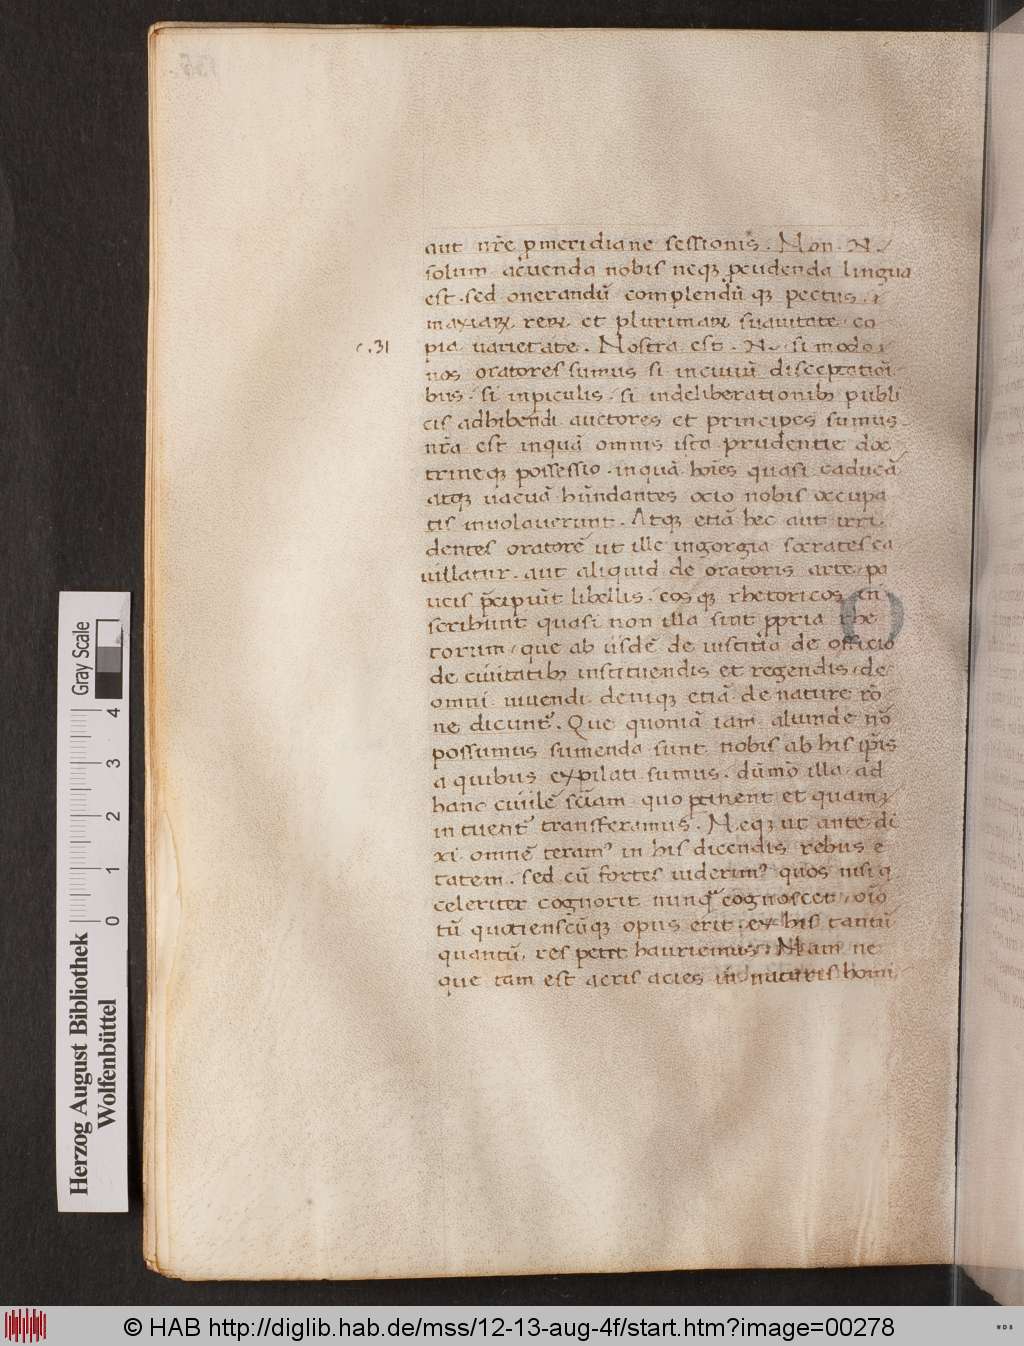 aut nr̄e pmeridiane sessionis. Non. N.
solum acuenda nobis neqꝫ peudenda lingua
est. sed onerandū complendū qꝫ pectus.
maxiaꝝ reꝝ. et plurimaꝝ suauitate co
c.31 pia uarietate. Nostra est. N. si modo
nos oratores sumus si inciuiū disceptatiōi
bus. si inpiculis. si indeliberationibꝫ publi
cis adhibendi auctores et principes sumus
nr̄a est inquā omnis ista prudentie doc
trineqꝫ possessio. inquā hoı̄es quasi caducā
atqꝫ uacuā hūndantes ocio nobis occupa
tis inuolauerunt. Atqꝫ etiā hec aut irri
dentes oratorē ut ille ingorgia socrates ca
uillatur. aut aliquid de oratoris arte pa
ucis p̄cipiūt libellis. eos qꝫ rhetoricos in
scribunt quasi non illa sint ꝓpria rhe
torum. que ab iisdē de iustitia de officio
de ciuitatibꝫ instituendis et regendis. de
omni uiuendi deniqꝫ etiā de nature rō
ne dicunt'. Que quoniā iam aliunde nō
possumus sumenda sunt nobis ab his ip̄is
a quibus expilati sumus. dūmō illa ad
hanc ciuilē sciam quo ptinent et quam
intuent' transferamus. Neqꝫ ut ante di
xi omnē teram' in his dicendis rebus e
tatem. sed cū fortes uiderim' quos nisi q
celeriter cognorit nunq̄ cognoscet. oīo
tū quotienscūqꝫ opus erit. ex his tantū
quantū res petit hauriemus. Nam ne
que tam est acris acies in naturis homi
Herzog August Bibliothek
Wolfenbüttel
0 1 2 3 4
Gray Scale
© HAB http://diglib.hab.de/mss/12-13-aug-4f/start.htm?image=00278